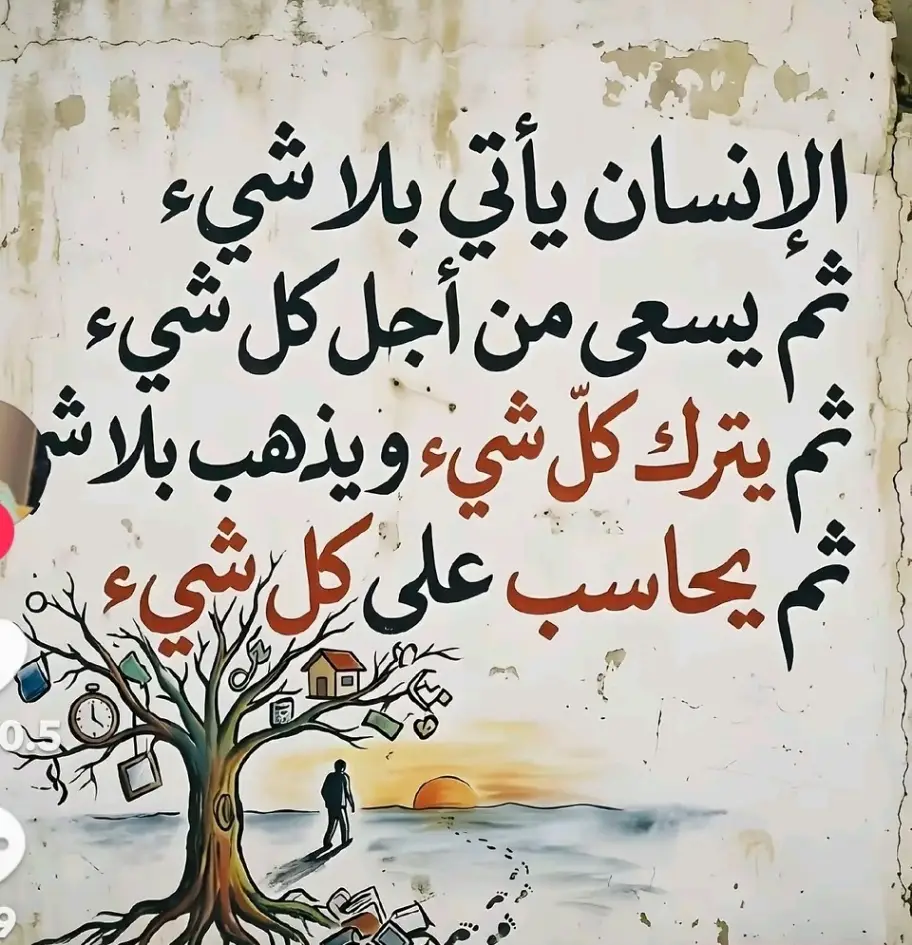 الإنسان يأتي بلا شيء
ثم يسعى من أجل كل شيء
ثم يترك كلّ شيء ويذهب بلا
ثم يحاسب على كل شيء
0.5
9